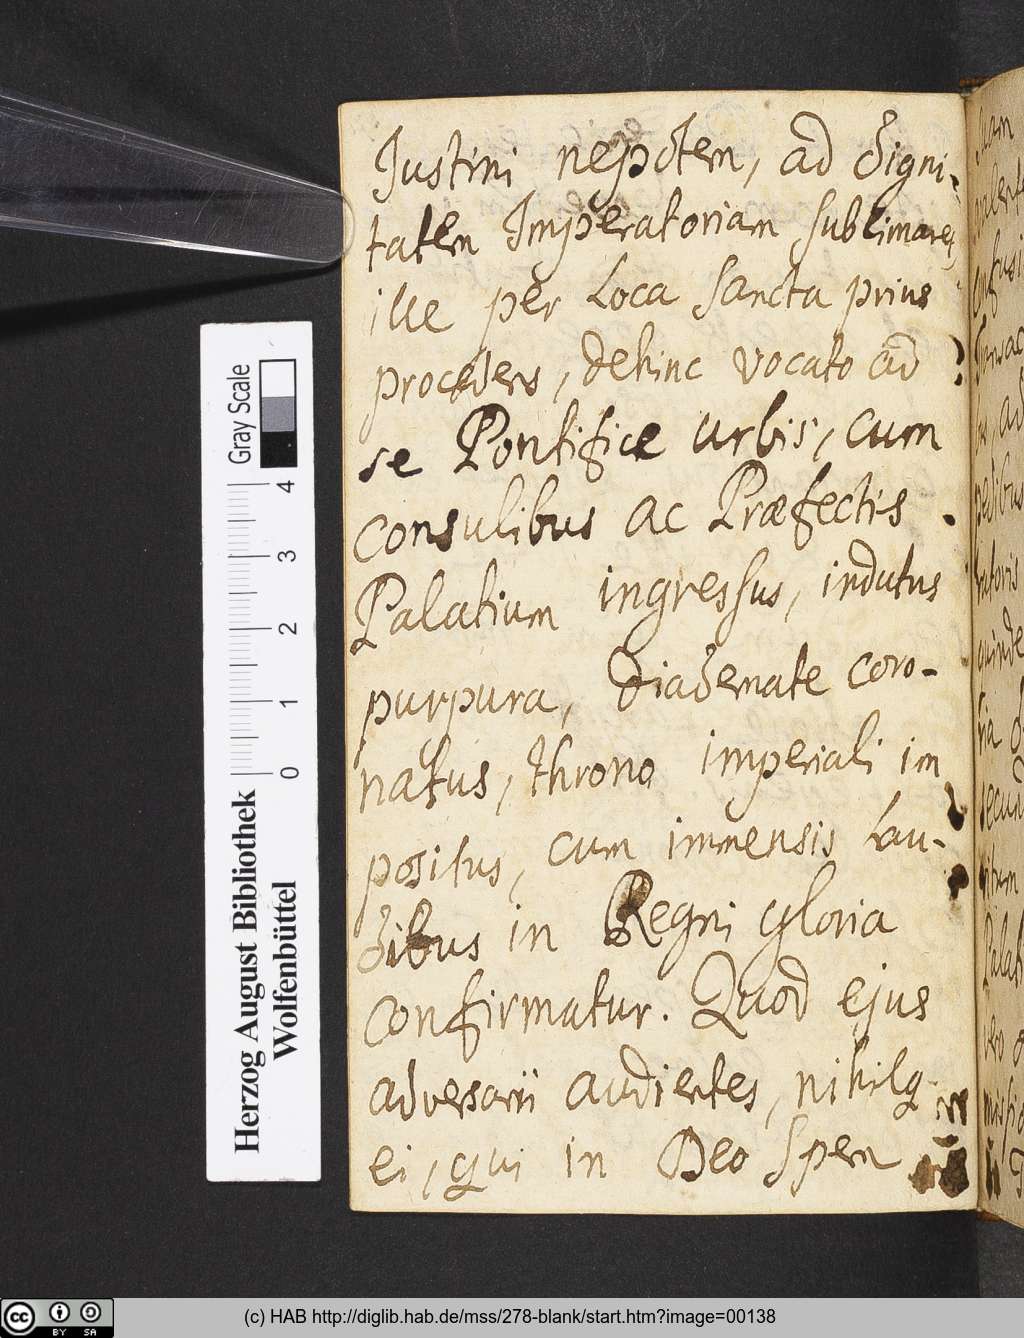 Justini nepotem, ad digni-
tatem Imperatoriam sublimare,
ille per Loca sancta prius
procedens, dehinc vocato ad
se Pontifice urbis, cum
consulibus ac Præfectis
Palatium ingressus, indutus
purpura, diademate coro-
natus, throno imperiali im
positus, cum immensis Lau-
dibus in Regni gloria
confirmatur. Quod ejus
adversarii audientes, nihilq
ei, qui in Deo Spem
Herzog August Bibliothek
Wolfenbüttel
Gray Scale
0 1 2 3 4
(c) HAB http://diglib.hab.de/mss/278-blank/start.htm?image=00138
cc BY SA